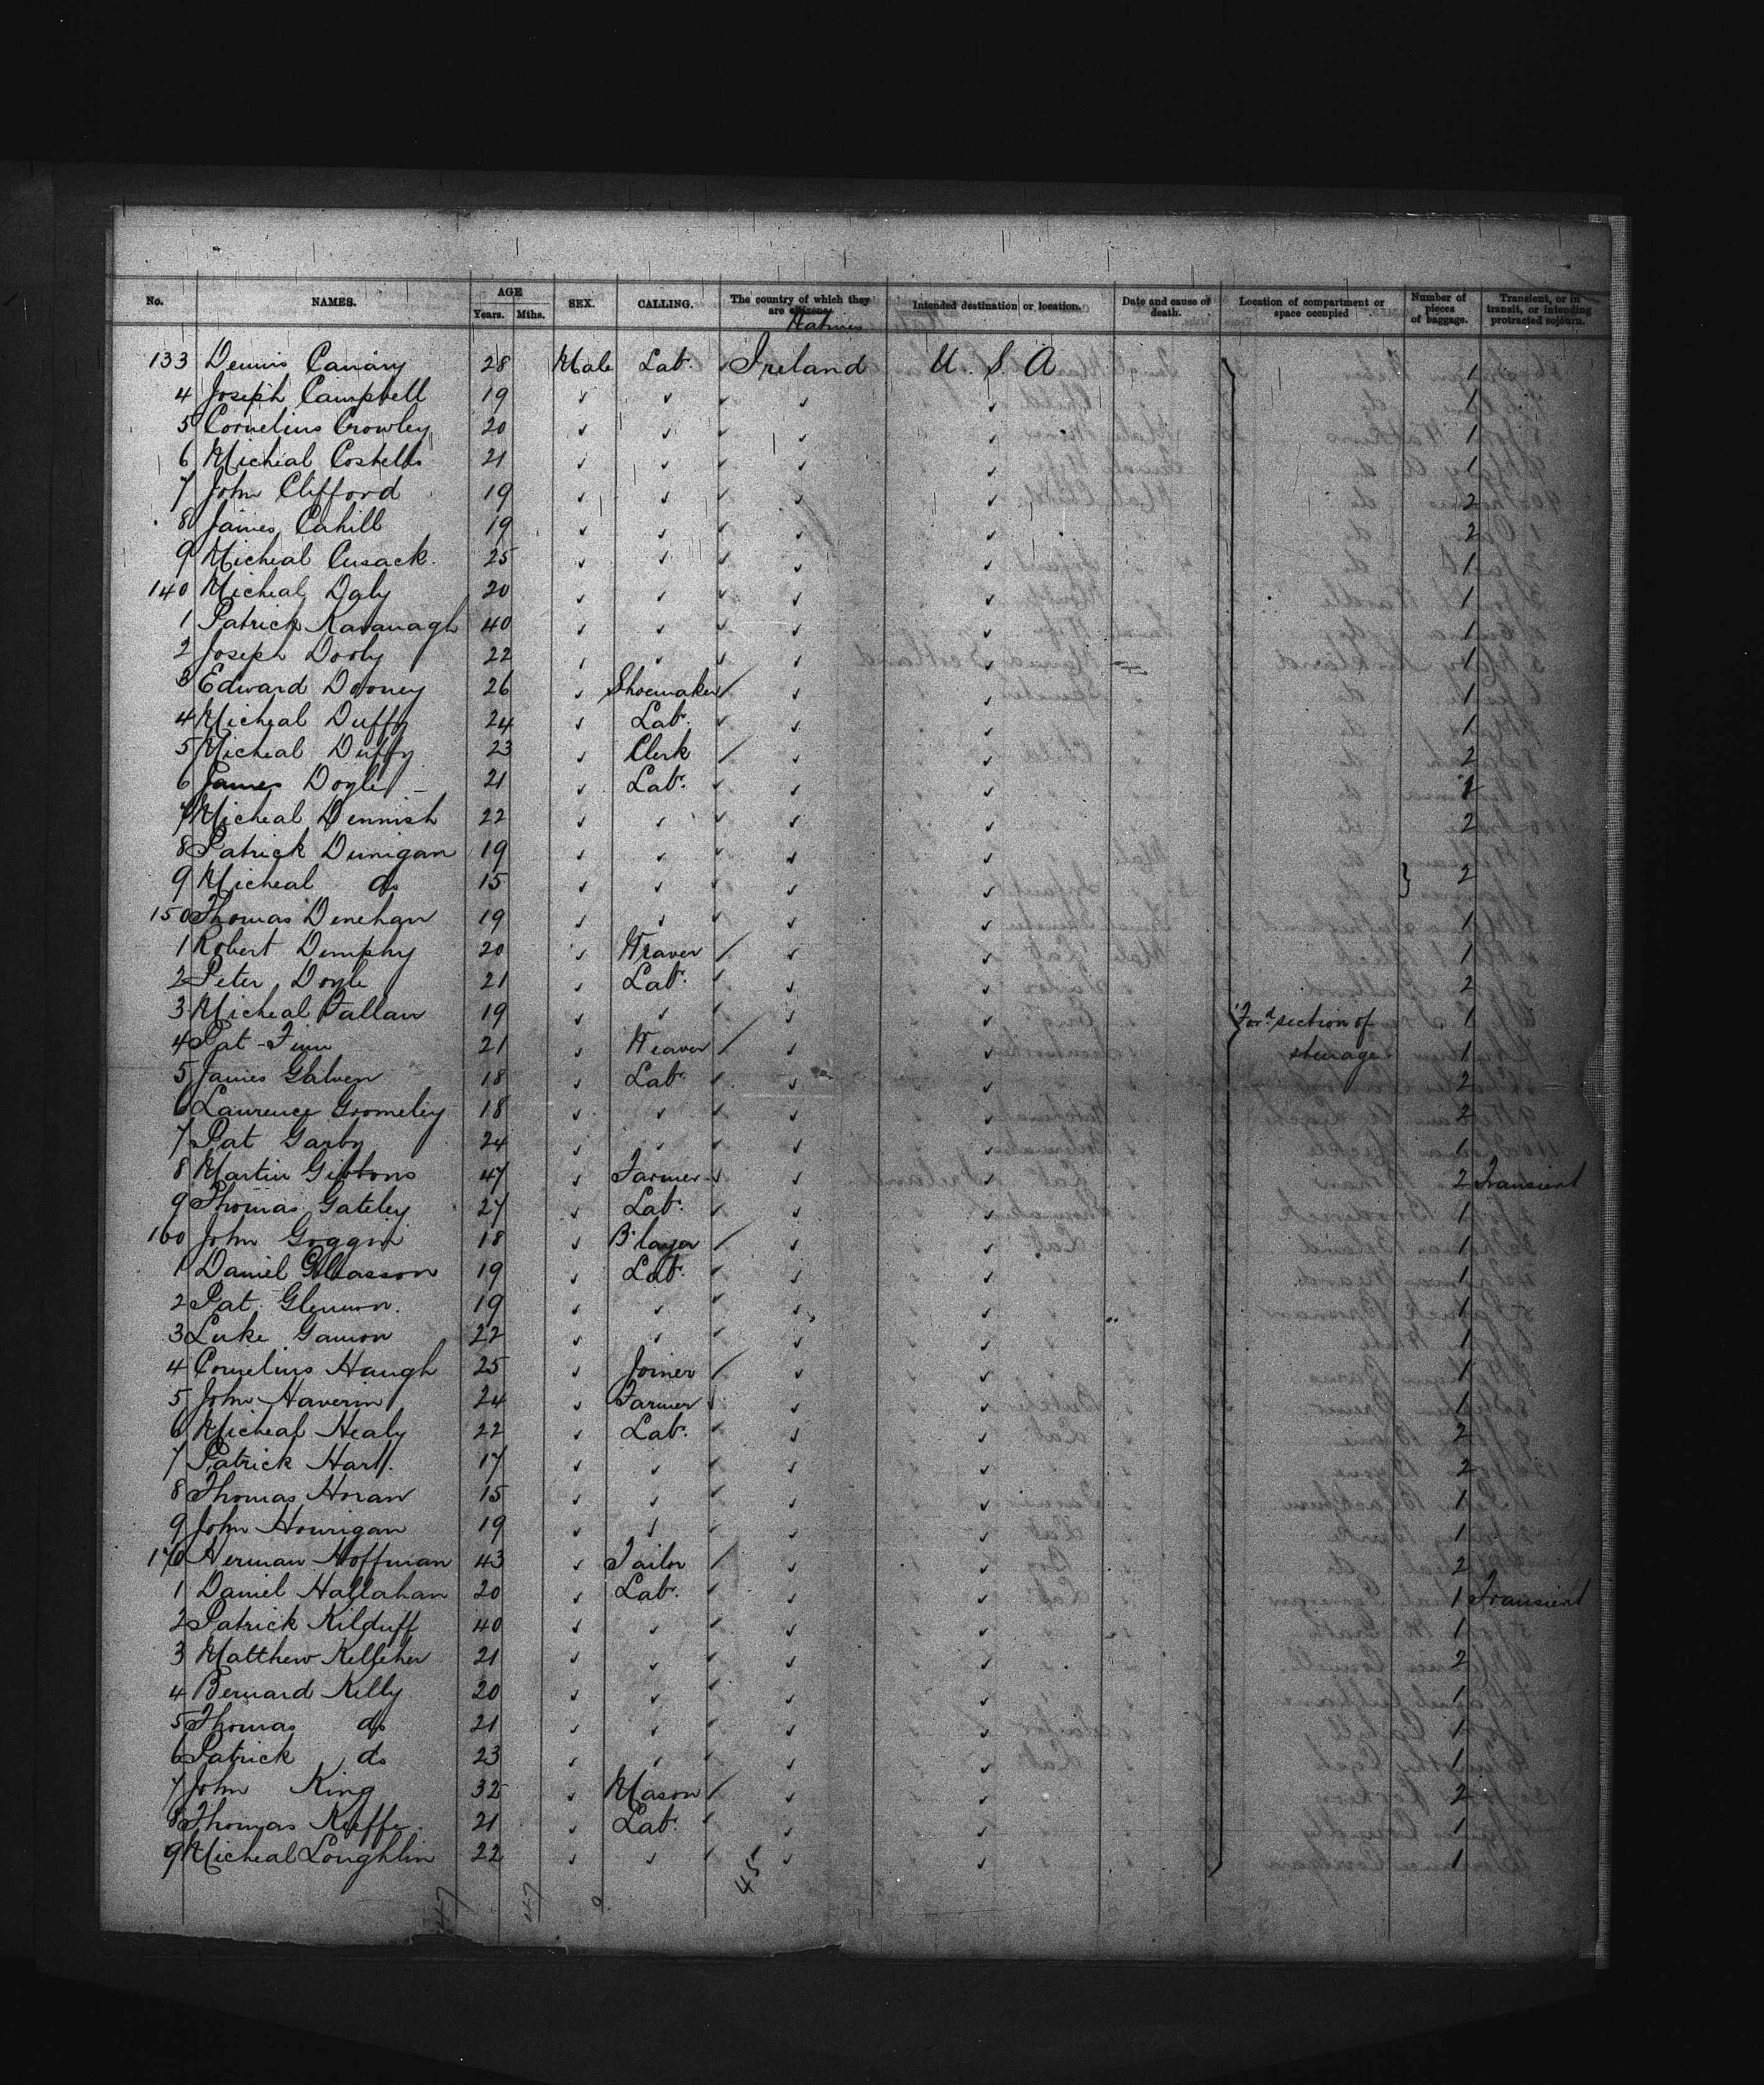 No. NAMES. AGE Years. Mths. SEX. CALLING. The country of which they are citizens. Natives Intended destination or location. Date and cause of death. Location of compartment or space occupied Number of pieces of baggage. Transient, or in transit, or intending protracted sojourn.
133 Dennis Canary 28 Male Lab. Ireland U. S. A 1
4 Joseph Campbell 19 1
5 Cornelius Crowley 20 1
6 Micheal Costello 21 1
7 John Clifford 19 2
8 James Cahill 19 2
9 Micheal Cusack. 25 1
140 Micheal Daly 20 1
1 Patrick Kavanagh 40 1
2 Joseph Dooly 22 1
3 Edward Dooney 26 Shoemaker 1
4 Micheal Duffy 24 Lab. 1
5 Micheal Duffy 23 Clerk 2
6 James Doyle 21 Lab.
7 Micheal Dennish 22 2
8 Patrick Dunigan 19
9 Micheal do 15 } 2
150 Thomas Denehan 19 1
1 Robert Demphy 20 Weaver 1
2 Peter Doyle 21 Lab. 2
3 Micheal Fallan 19 Ford. section of 1
4 Pat Finn 21 Weaver steerage 1
5 James Galven 18 Lab. 2
6 Laurence Gromeley 18 2
7 Pat Garby 24 1
8 Martin Gibbons 47 Farmer 2 Transient
9 Thomas Gateley 27 Lab. 1
160 John Goggin 18 B'layer 1
1 Daniel Gleasson 19 Lab. 1
2 Pat. Glennon. 19 1
3 Luke Gannon 22 1
4 Cornelius Haugh 25 Joiner 1
5 John Haverin 24 Farmer 1
6 Micheal Healy 22 Lab. 2
7 Patrick Hart. 17 2
8 Thomas Horan 15 1
9 John Hourigan 19 1
170 Herman Hoffman 43 Tailor 2
1 Daniel Hallahan 20 Lab. 1 Transient
2 Patrick Kilduff 40 1
3 Matthew Kelleher 21 2
4 Bernard Kelly 20 1
5 Thomas do 21 1
6 Patrick do 23 1
7 John King 32 Mason 2
8 Thomas Keeffe. 21 Lab. 1
9 Micheal Loughlin 22 1
47 47 45